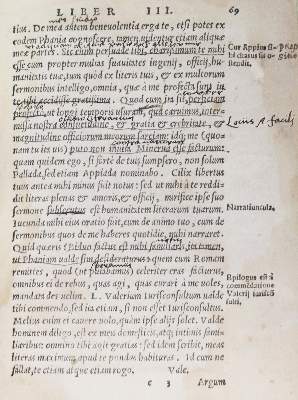 LIBER III. 69
tia. De mea autem benevolentia erga te, etsi potes ex
eodem Phania cognoscere, tamen videntur etiam aliquæ
meæ partes. Sic enim
esse cum propter multas suavitates ingenij, officij, hu-
manitatis tuæ, tum quòd ex literis tuis, & ex multorum
sermonibus intelligo, omnia, quæ à me profecta sunt in
te, tibi accidisse gratissima. Quod cum ita sit, perficiam
profecto, ut longi temporis usuram, qua caruimus, inter-
missa nostra consuetudine, & gratia & crebritate, &
magnitudine officiorum meorum sarciam: idq; me (quo-
niam tu ita vis) puto non invita Minerva esse facturum:
quam quidem ego, si forte de tuis sumpsero, non solum
Pallada, sed etiam Appiada nominabo. Cilix libertus
tuus antea mihi minus fuit notus: sed ut mihi à te reddi-
dit literas plenas & amoris, & officij, mirifice ipse suo
sermone subsecutus est humanitatem literarum tuarum.
Jucunda mihi eius oratio fuit, cum de animo tuo, cum de
sermonibus quos de me haberes quotidie, mihi narraret.
Quid quæris? Biduo factus est mihi familiaris, ita tamen,
ut Phaniam valde sim desideraturus: quem cum Romam
remittes, quod (ut putabamus) celeriter eras facturus,
omnibus ei de rebus, quas agi, quas curari à me voles,
mandata des velim. L. Valerium Iurisconsultum valde
tibi commendo, sed ita etiam, si non est Iurisconsultus.
Melius enim ei cavere volo, quàm ipse alijs solet. Valde
hominem diligo, est ex meis domesticis, atq; intimis fami-
liaribus: omnino tibi agit gratias: sed idem scribit, meas
literas maximum apud te pondus habituras. Id eum ne
fallat, te etiam atque etiam rogo. Vale.
c 3 Argum
Cur Appius
ostendit.
Narratiuncula.
Epilogus est à
commēdatione
Valerij iurisco
sulti,